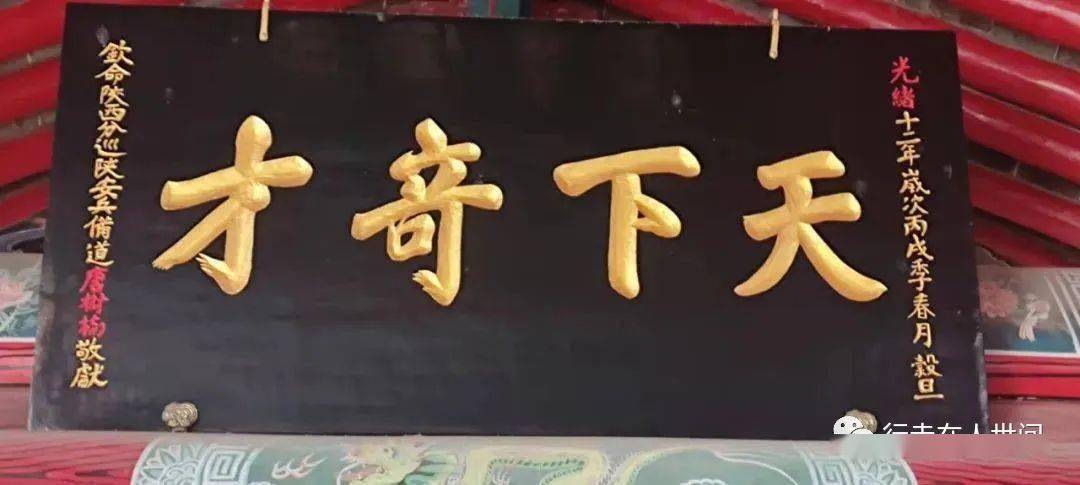 光緒十二年歲次丙戌季春月穀旦
天下奇才
欽命陝西分巡陝安兵備道唐樹楠敬獻
行走在人世间